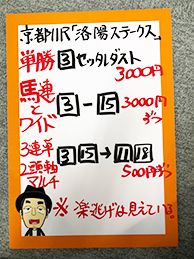 京都11R「洛陽ステークス」
単勝 3 セッタレダスト
3000円
馬連とワイド 3－15 3000円ずつ
3連単2頭軸マルチ 3 15→11 18
500円ずつ
※楽逃げは見えている。